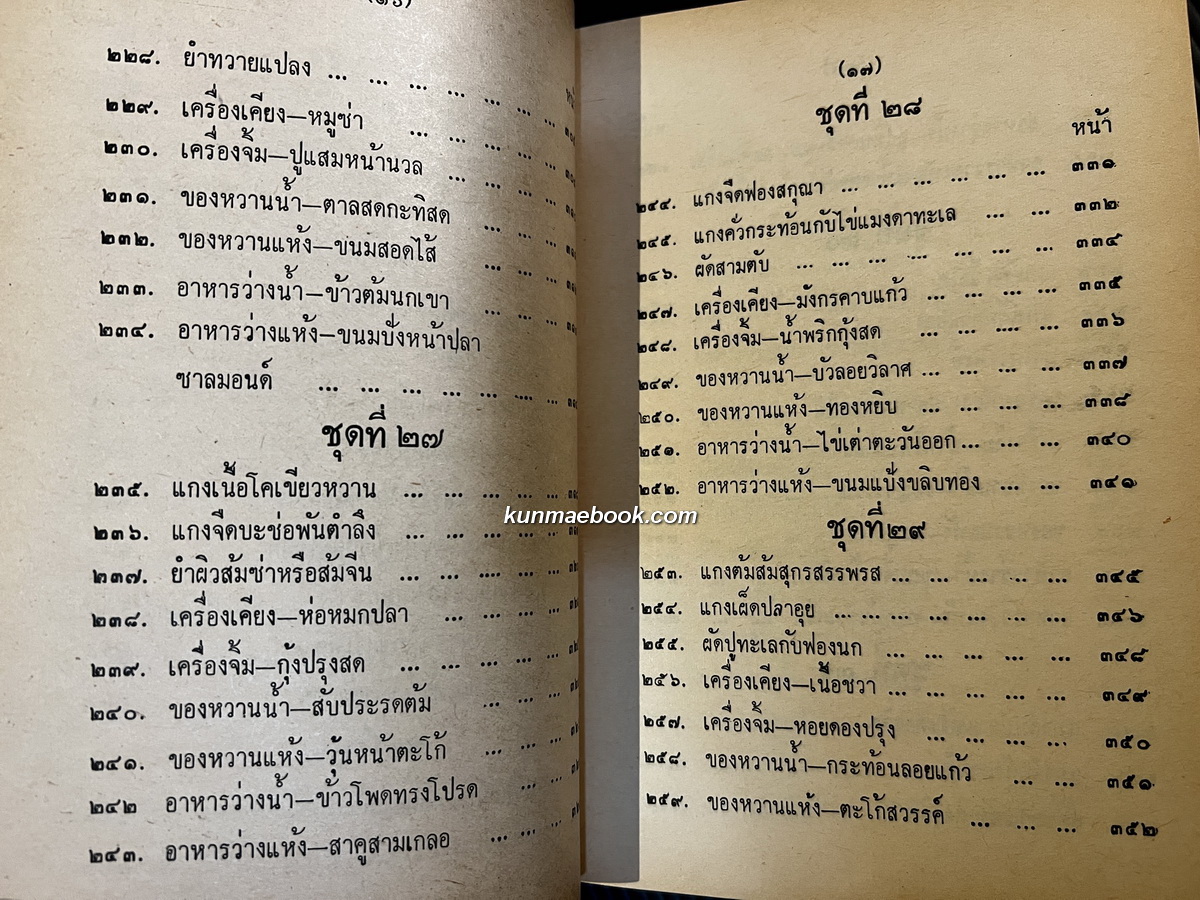 ๒๒๘. ยำทวายแปลง ... ... ... ... ... ... ...
๒๒๙. เครื่องเคียง—หมูซ่า ... ... ... ... ...
๒๓๐. เครื่องจิ้ม—ปูแสมหน้านวล ... ... ...
๒๓๑. ของหวานน้ำ—ตาลสดกะทิสด ... ...
๒๓๒. ของหวานแห้ง—ขนมสอดไส้ ... ...
๒๓๓. อาหารว่างน้ำ—ข้าวต้มนกเขา ... ...
๒๓๔. อาหารว่างแห้ง—ขนมปั่งหน้าปลา
ซาลมอนด์ ... ... ... ... .... ...
ชุดที่ ๒๗
๒๓๕. แกงเนื้อโคเขียวหวาน ... ... ... ... ...
๒๓๖. แกงจืดบะช่อพันตำลึง ... ... ... ...
๒๓๗. ยำผิวส้มซ่าหรือส้มจีน ... ... .... ... ...
๒๓๘. เครื่องเคียง—ห่อหมกปลา ... ... ... ...
๒๓๙. เครื่องจิ้ม—กุ้งปรุงสด ... ... ... ... ...
๒๔๐. ของหวานน้ำ—สับประรดต้ม ... ...
๒๔๑. ของหวานแห้ง—วุ้นหน้าตะโก้ ... ... ...
๒๔๒ อาหารว่างน้ำ—ข้าวโพดทรงโปรด ... ...
๒๔๓. อาหารว่างแห้ง—สาคูสามเกลอ ... ... ...
(๑๗)
ชุดที่ ๒๘
หน้า
๒๔๔. แกงจืดฟองสกุณา ... ... ... ... ... ... ๓๓๑
๒๔๕. แกงคั่วกระท้อนกับไข่แมงดาทะเล ... ... ๓๓๒
๒๔๖. ผัดสามตับ ... ... ... ... ... ... ... ๓๓๔
๒๔๗. เครื่องเคียง—มังกรคาบแก้ว ... ... ... ... ๓๓๕
๒๔๘. เครื่องจิ้ม—น้ำพริกกุ้งสด ... ... .... ... ๓๓๖
๒๔๙. ของหวานน้ำ—บัวลอยวิลาศ ... ... ... ... ๓๓๗
๒๕๐. ของหวานแห้ง—ทองหยิบ ... ... ... ... ๓๓๘
๒๕๑. อาหารว่างน้ำ—ไข่เต่าตะวันออก ... ... ... ๓๔๐
๒๕๒. อาหารว่างแห้ง—ขนมแป้งขลิบทอง ... ... ๓๔๑
ชุดที่๒๙
๒๕๓. แกงต้มส้มสุกรสรรพรส ... ... ... ... ... ๓๔๕
๒๕๔. แกงเผ็ดปลาอุย ... ... ... ... ... ... ๓๔๖
๒๕๕. ผัดปูทะเลกับฟองนก ... ... ... ... ... ๓๔๘
๒๕๖. เครื่องเคียง—เนื้อชวา ... ... ... ... ... ๓๔๙
๒๕๗. เครื่องจิ้ม—หอยดองปรุง ... ... ... ... ๓๕๐
๒๕๘. ของหวานน้ำ—กระท้อนลอยแก้ว ... ... ๓๕๑
๒๕๙. ของหวานแห้ง—ตะโก้สวรรค์ ... ... ... ๓๕๒
kunmaebook.com